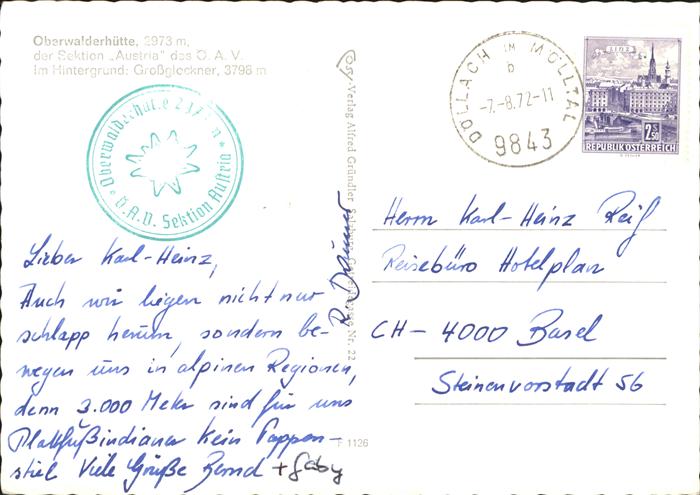 Oberwalderhütte, 2973 m,
der Sektion „Austria" des Ö. A. V.
Im Hintergrund: Großglockner, 3798 m
Oberwalderhütte 2973 m
Ö.A.V. Sektion Austria
Lieber Karl-Heinz,
Auch wir liegen nicht nur
schlapp herum, sondern be-
wegen uns in alpinen Regionen,
denn 3.000 Meter sind für uns
Plattfußindianer kein Pappen-
stiel Viele Grüße Bernd + Gaby
Post-Verlag Alfred Gründler, Salzburg
23
F 1126
DÖLLACH IM MÖLLTAL
b
-7.-8.72-11
9843
LINZ
2.50
REPUBLIK ÖSTERREICH
Herrn Karl-Heinz Reif
Reisebüro Hotelplan
CH - 4000 Basel
Steinenvorstadt 56